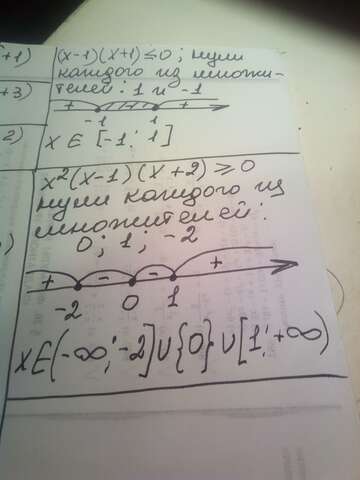 +1)
(x-1)(x+1)≤0; нули
каждого из множи-
+3)
телей: 1 и -1
+ - +
-1 1
2)
x ∈ [-1; 1]
x²(x-1)(x+2)≥0
нули каждого из
множителей:
)
0; 1; -2
+ - - +
-2 0 1
x∈(-∞;-2]∪{0}∪[1;+∞)